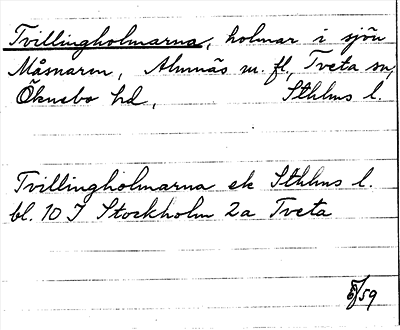 Tvillingholmarna, holmar i sjön
Måsnaren, Almnäs m. fl., Tveta sn,
Öknebo hd, Sthlms l.
Tvillingholmarna ek Sthlms l.
bl. 10 I Stockholm 2a Tveta
/59